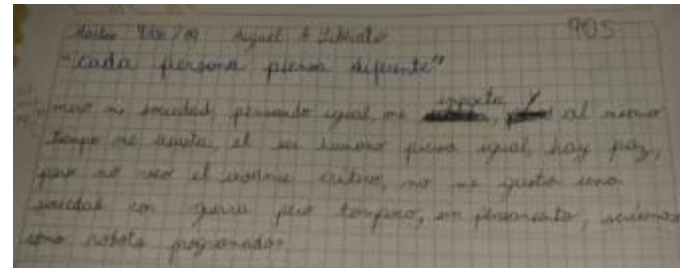 Martes Miguel A 905
"Cada persona piensa diferente"
miro mi sociedad, pensando igual, me importa, y al mismo
tiempo me asusta, el ser humano piensa igual, hay paz,
pero no veo el enorme critico, no me gusta una
sociedad con guerra pero tampoco, sin pensamiento, seriamos
como robots programados